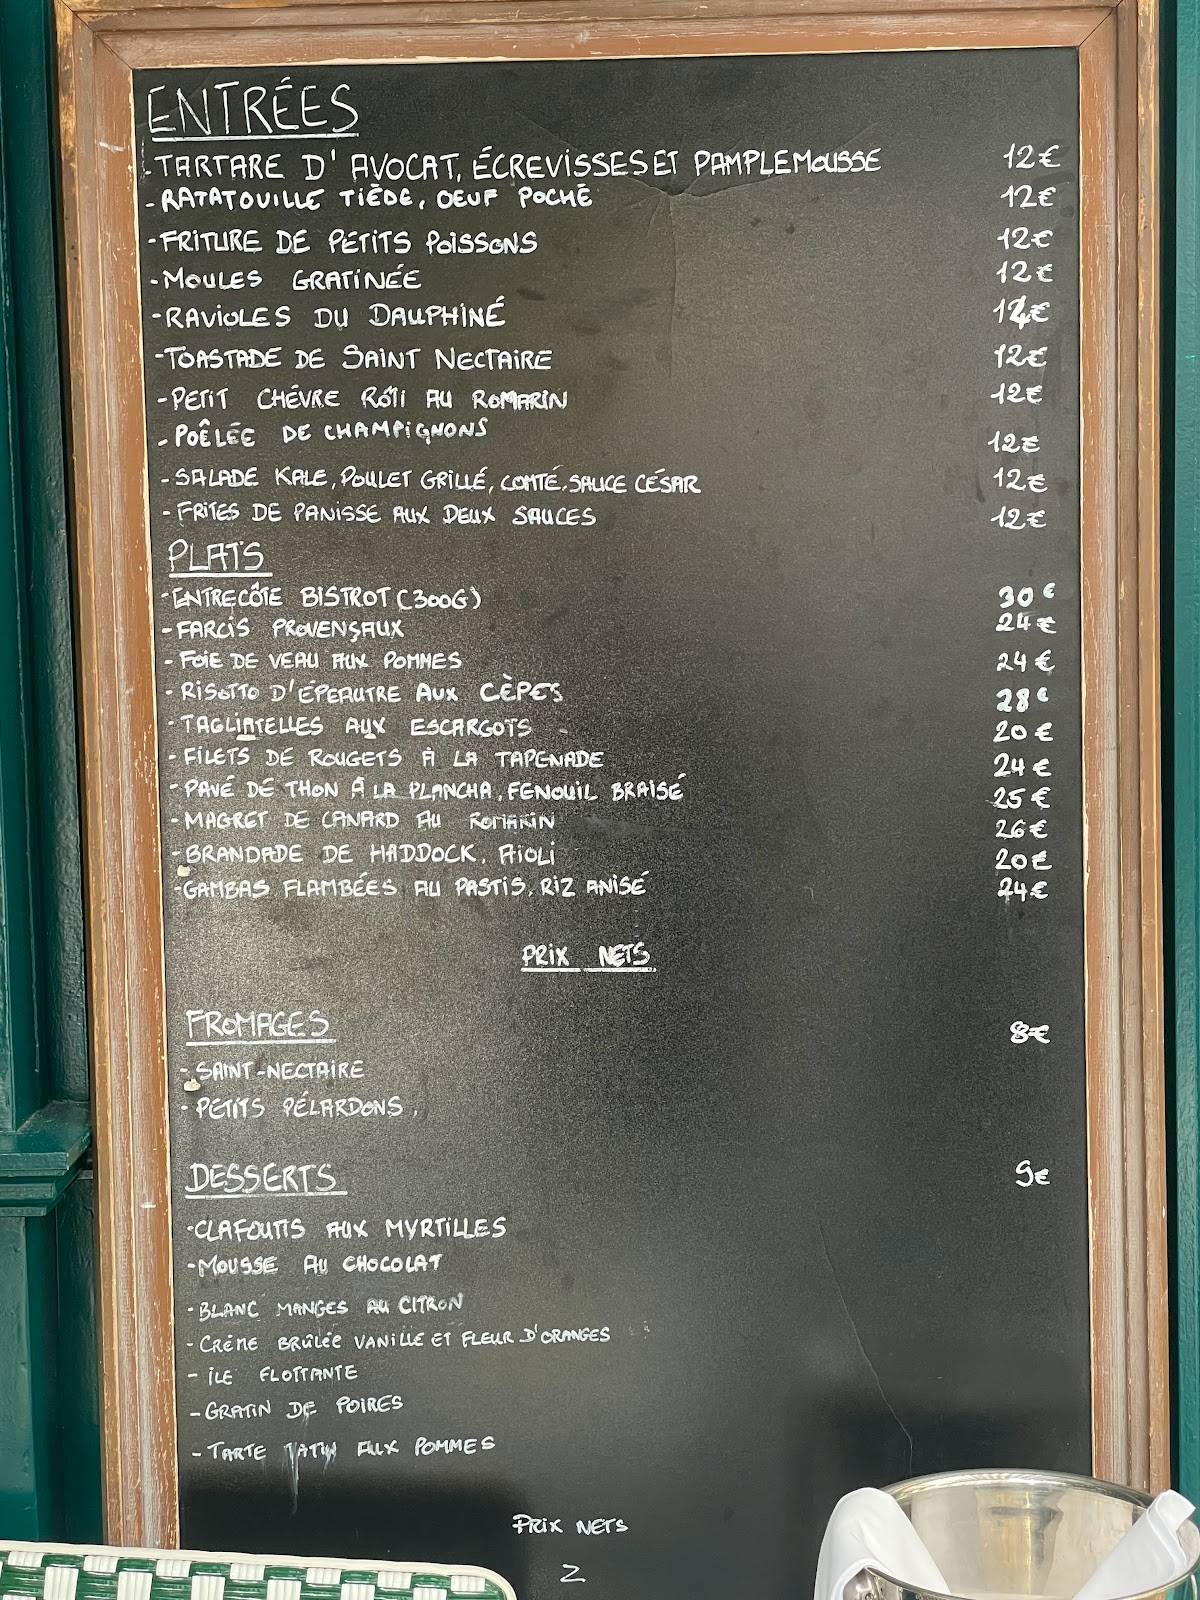 ENTRÉES
- TARTARE D'AVOCAT, ÉCREVISSES ET PAMPLEMOUSSE 12€
- RATATOUILLE TIÈDE, OEUF POCHÉ 12€
- FRITURE DE PETITS POISSONS 12€
- MOULES GRATINÉE 12€
- RAVIOLES DU DAUPHINÉ
- TOASTADE DE SAINT NECTAIRE 12€
- PETIT CHÉVRE RÔTI AU ROMARIN 12€
- POÊLÉE DE CHAMPIGNONS 12€
- SALADE KALE, POULET GRILLÉ, COMTÉ, SAUCE CÉSAR 12€
- FRITES DE PANISSE AUX DEUX SAUCES 12€
PLATS
- ENTRECÔTE BISTROT (300G) 30€
- FARCIS PROVENÇAUX 24€
- FOIE DE VEAU AUX POMMES 24€
- RISOTTO D'ÉPEAUTRE AUX CÈPES 28€
- TAGLIATELLES AUX ESCARGOTS 20€
- FILETS DE ROUGETS À LA TAPENADE 24€
- PAVÉ DE THON À LA PLANCHA, FENOUIL BRAISÉ 25€
- MAGRET DE CANARD AU ROMARIN 26€
- BRANDADE DE HADDOCK, AIOLI 20€
- GAMBAS FLAMBÉES AU PASTIS, RIZ ANISÉ 24€
PRIX NETS
FROMAGES 8€
- SAINT-NECTAIRE
- PETITS PÉLARDONS,
DESSERTS 9€
- CLAFOUTIS AUX MYRTILLES
- MOUSSE AU CHOCOLAT
- BLANC MANGES AU CITRON
- CRÉME BRÛLÉE VANILLE ET FLEUR D'ORANGES
- ILE FLOTTANTE
- GRATIN DE POIRES
- TARTE TATIN AUX POMMES
PRIX NETS
2